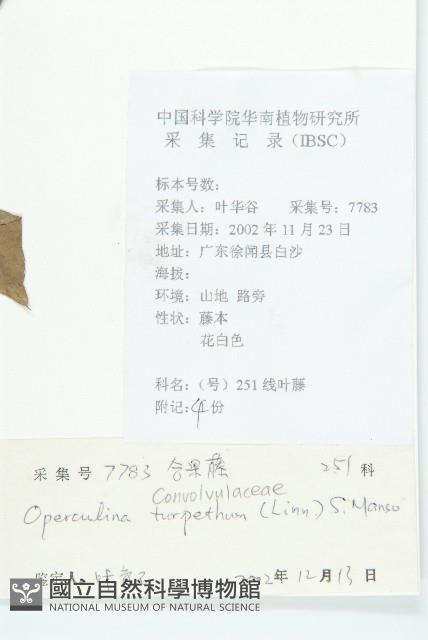 中国科学院华南植物研究所
采 集 记 录（IBSC）
标本号数：
采集人：叶华谷 采集号：7783
采集日期：2002 年 11 月 23 日
地址：广东徐闻县白沙
海拔：
环境：山地 路旁
性状：藤本
花白色
科名：（号）251 线叶藤
附记：4份
采 集 号 7783 合果藤 251 科
Convolvulaceae
Operculina turpethum (Linn) S. Manso
鉴定人 2002年 12月 13 日
國立自然科學博物館
NATIONAL MUSEUM OF NATURAL SCIENCE